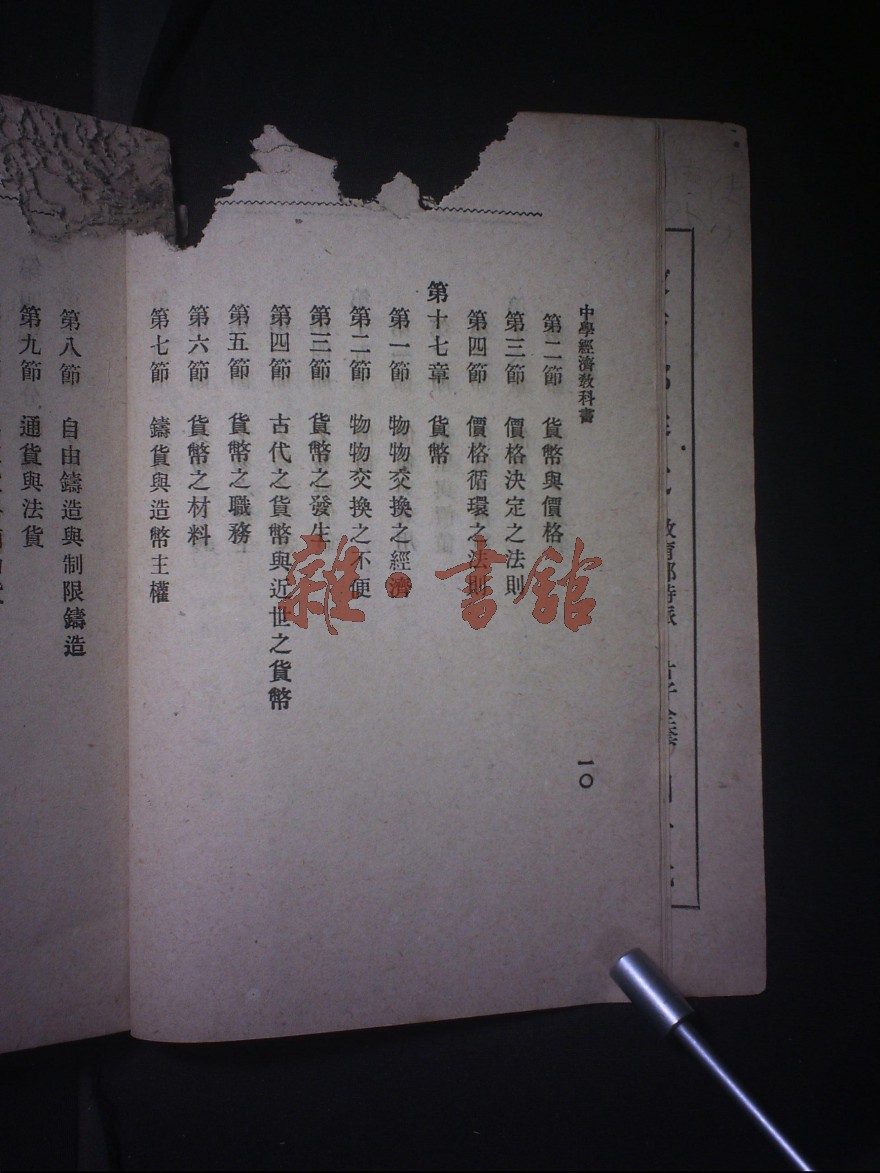 中學經濟敎科書
一〇
第二節 貨幣與價格
第三節 價格決定之法則
第四節 價格循環之法則
第十七章 貨幣
第一節 物物交換之經濟
第二節 物物交換之不便
第三節 貨幣之發生
第四節 古代之貨幣與近世之貨幣
第五節 貨幣之職務
第六節 貨幣之材料
第七節 鑄貨與造幣主權
第八節 自由鑄造與制限鑄造
第九節 通貨與法貨
雜·書館